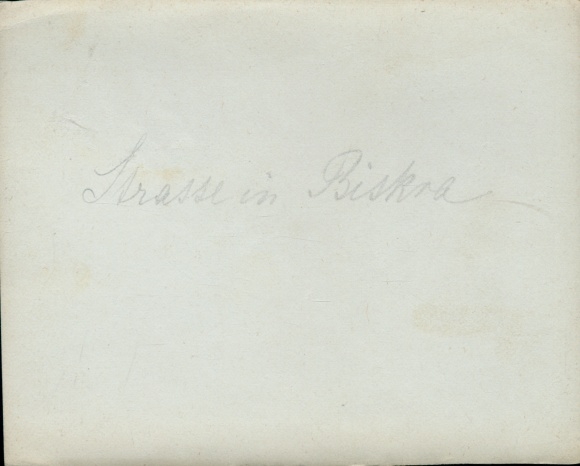 Strasse in Biskra